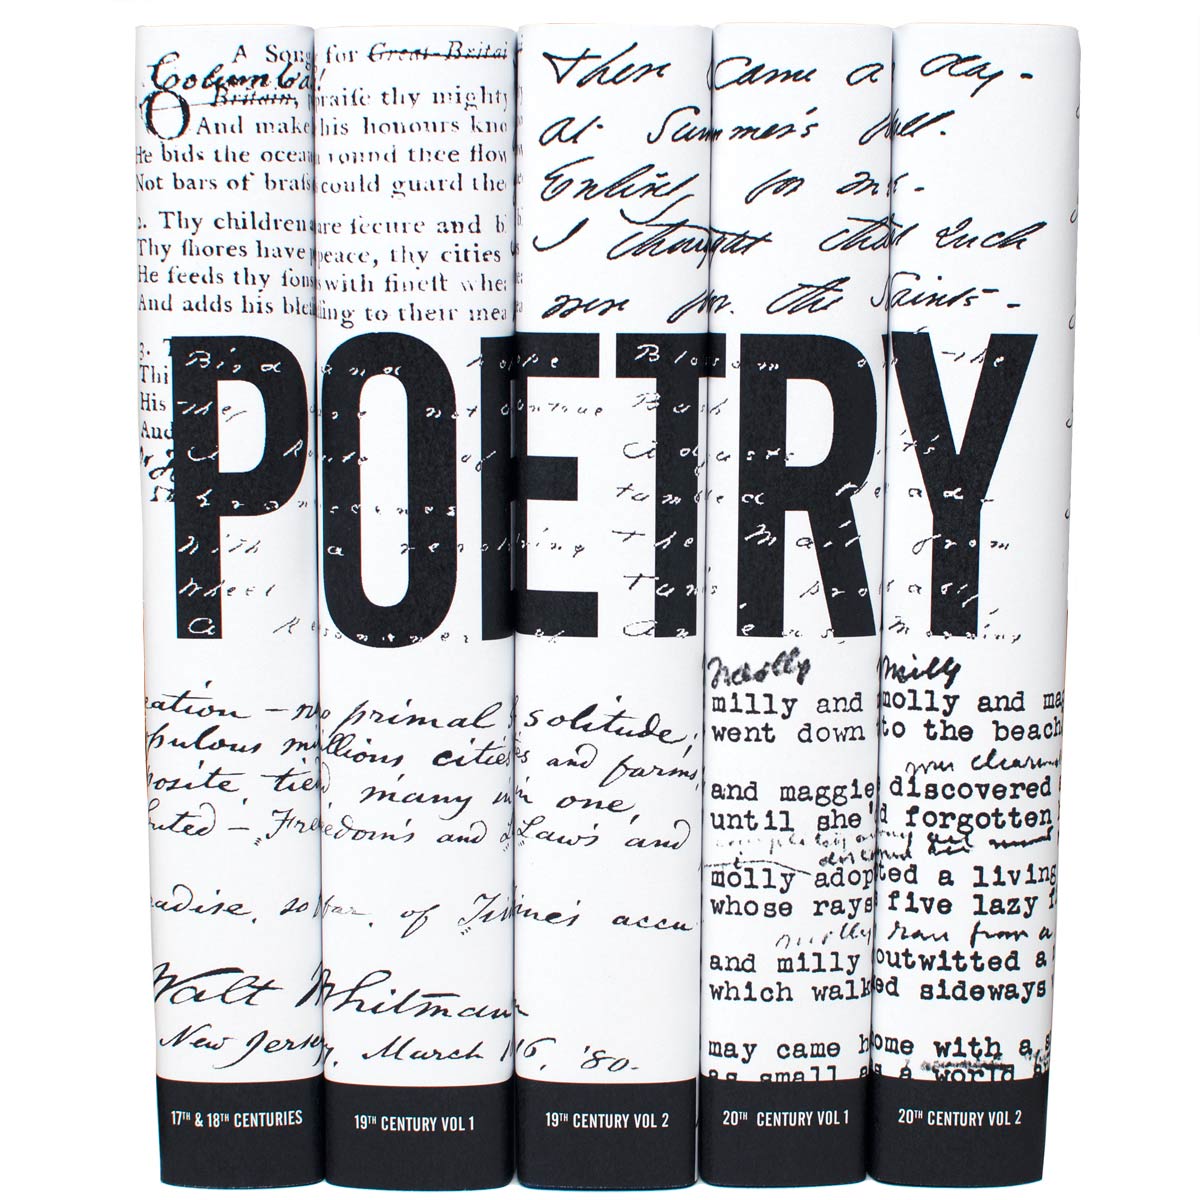 A Song for Great-Britai
Columbia!
Britain,
O praise thy mighty
And make his honours kno
He bids the ocean round thee flow
Not bars of brass could guard thee
2. Thy children are secure and b
Thy shores have peace, thy cities
He feeds thy sons with finest whea
And adds his blessing to their mea
3. T
Thi
His
And
There came a day -
at Summer's full.
Entirely for me -
I thought that such
were for the Saints -
POETRY
A Route of
With a revolving
Wheel
A Resonance of
Blossom on the
Bush
Adjusts it's
tumbled Head -
The Mail from
Tunis probably
An easy Morning's
eation - no primal solitude;
opulous millions cities and farms,
posite, tied, many in one,
buted - Freedom's and Law's and
adise, so far, of Time's accu
Walt Whitman
New Jersey, March 16, '80.
molly milly
milly and molly and ma
went down to the beach
and maggie discovered
until she'd forgotten
molly adopted a living
whose rays five lazy f
milly ran from a
and milly outwitted a
which walked sideways
may came home with a s
as small as a world an
17TH & 18TH CENTURIES
19TH CENTURY VOL 1
19TH CENTURY VOL 2
20TH CENTURY VOL 1
20TH CENTURY VOL 2